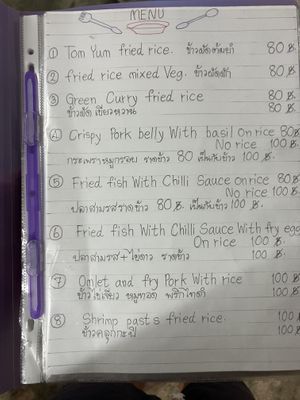 MENU
① Tom Yum fried rice. ข้าวผัดต้มยำ 80 ฿.
② fried rice mixed Veg. ข้าวผัดผัก 80 ฿.
③ Green Curry fried rice 80 ฿.
ข้าวผัดเขียวหวาน 80 ฿.
④ Crispy Pork belly With basil On rice 80฿
No rice 100 ฿.
กระเพราหมูกรอบ ราดข้าว 80 เป็นกับข้าว 100 ฿.
⑤ Fried fish With Chilli Sauce on rice 80฿
No rice 100 ฿.
ปลาสามรสราดข้าว 80 ฿. เป็นกับข้าว 100 ฿.
⑥ Fried fish With Chilli Sauce With fry egg
On rice 100 ฿.
ปลาสามรส+ไข่ดาว ราดข้าว 100 ฿.
⑦ Omlet and fry Pork With rice 100 ฿.
ข้าวไข่เจียว หมูทอด พริกไทยดำ 100 ฿.
⑧ Shrimp past's fried rice. 100 ฿
ข้าวคลุกกะปิ 100 ฿